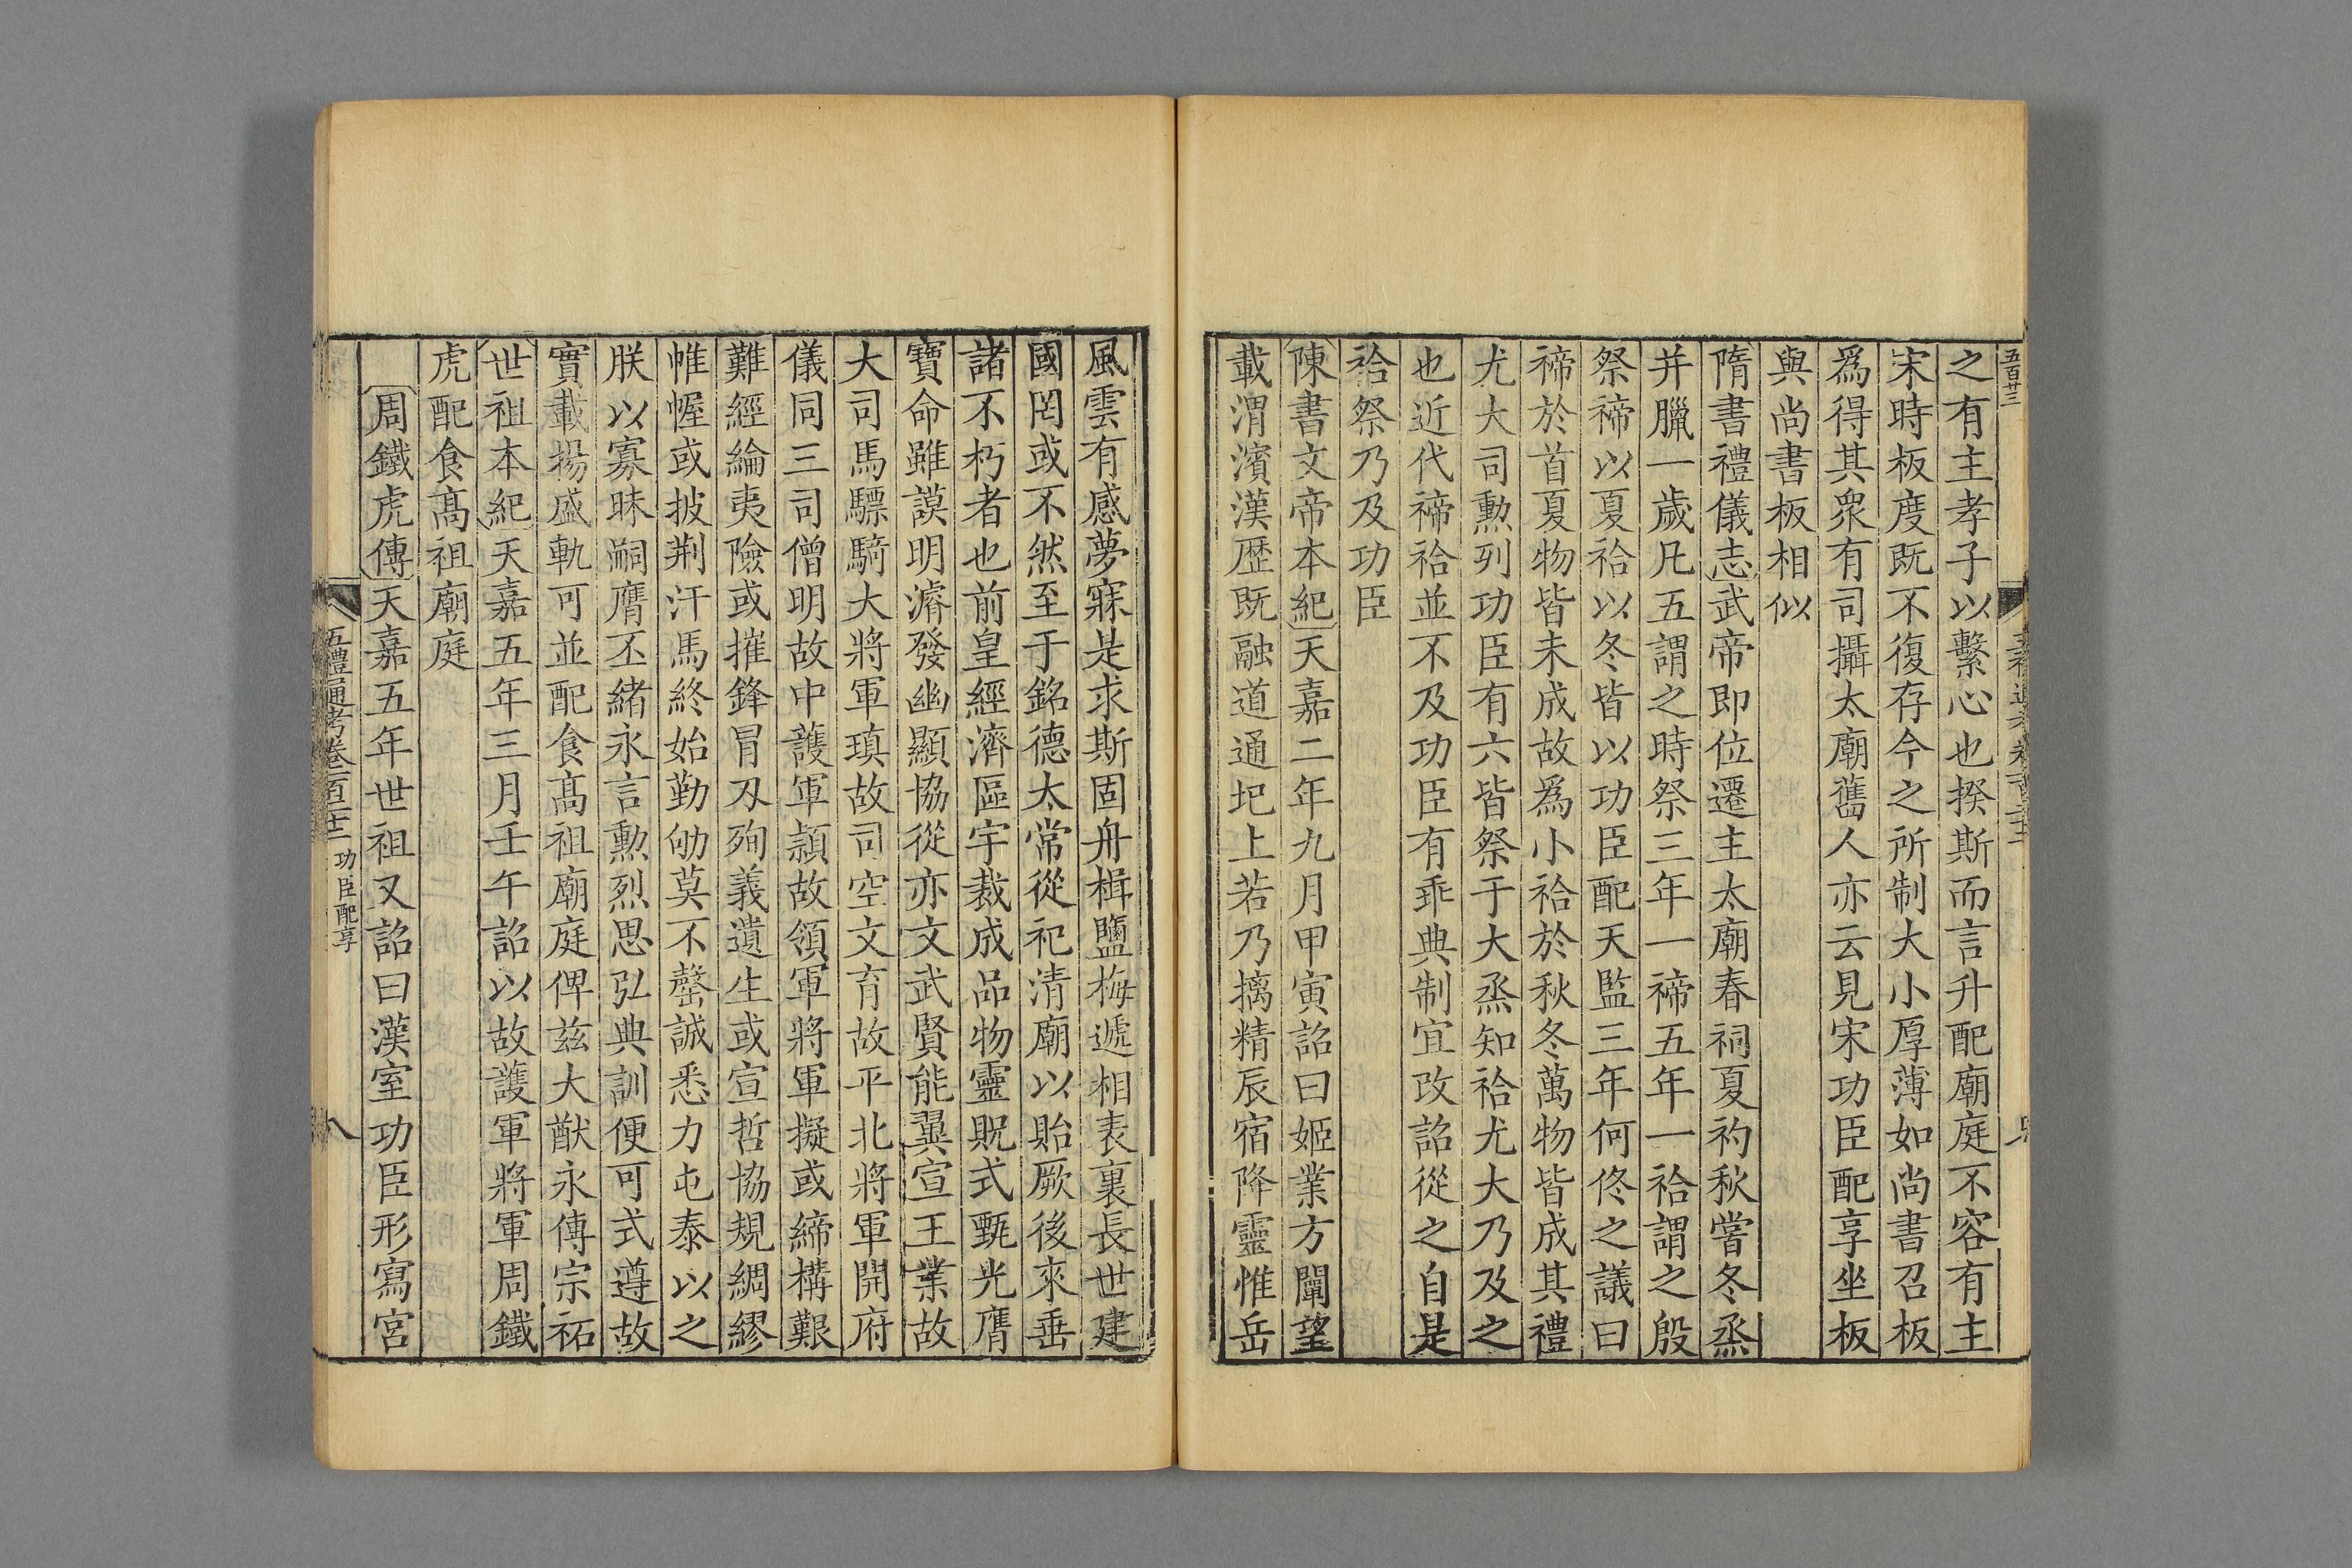 五百廿三
之有主孝子以繫心也揆斯而言升配廟庭不容有主
宋時板度既不復存今之所制大小厚薄如尚書召板
爲得其衆有司攝太廟舊人亦云見宋功臣配享坐板
與尚書板相似
隋書禮儀志武帝即位遷主太廟春祠夏礿秋嘗冬烝
并臘一歲凡五謂之時祭三年一禘五年一祫謂之殷
祭禘以夏祫以冬皆以功臣配天監三年何佟之議曰
禘於首夏物皆未成故爲小祫於秋冬萬物皆成其禮
尤大司勳列功臣有六皆祭于大烝知祫尤大乃及之
也近代禘祫並不及功臣有乖典制宜改詔從之自是
祫祭乃及功臣
陳書文帝本紀天嘉二年九月甲寅詔曰姬業方闡望
載渭濱漢歷既融道通圯上若乃摛精辰宿降靈惟岳
風雲有感夢寐是求斯固舟楫鹽梅遞相表裏長世建
國罔或不然至于銘德太常從祀清廟以貽厥後來垂
諸不朽者也前皇經濟區宇裁成品物靈貺式甄光膺
寶命雖謨明濬發幽顯協從亦文武賢能翼宣王業故
大司馬驃騎大將軍瑱故司空文育故平北將軍開府
儀同三司僧明故中護軍潁故領軍將軍擬或締構艱
難經綸夷險或摧鋒冒刃殉義遺生或宣哲協規綢繆
帷幄或披荆汗馬終始勤劬莫不罄誠悉力屯泰以之
朕以寡昧嗣膺丕緒永言勲烈思弘典訓便可式遵故
實載揚盛軌可並配食髙祖廟庭俾兹大猷永傳宗祏
世祖本紀天嘉五年三月壬午詔以故護軍將軍周鐵
虎配食髙祖廟庭
周鐵虎傳天嘉五年世祖又詔曰漢室功臣形寫宮
五禮通考卷一百二十二 功臣配享 八